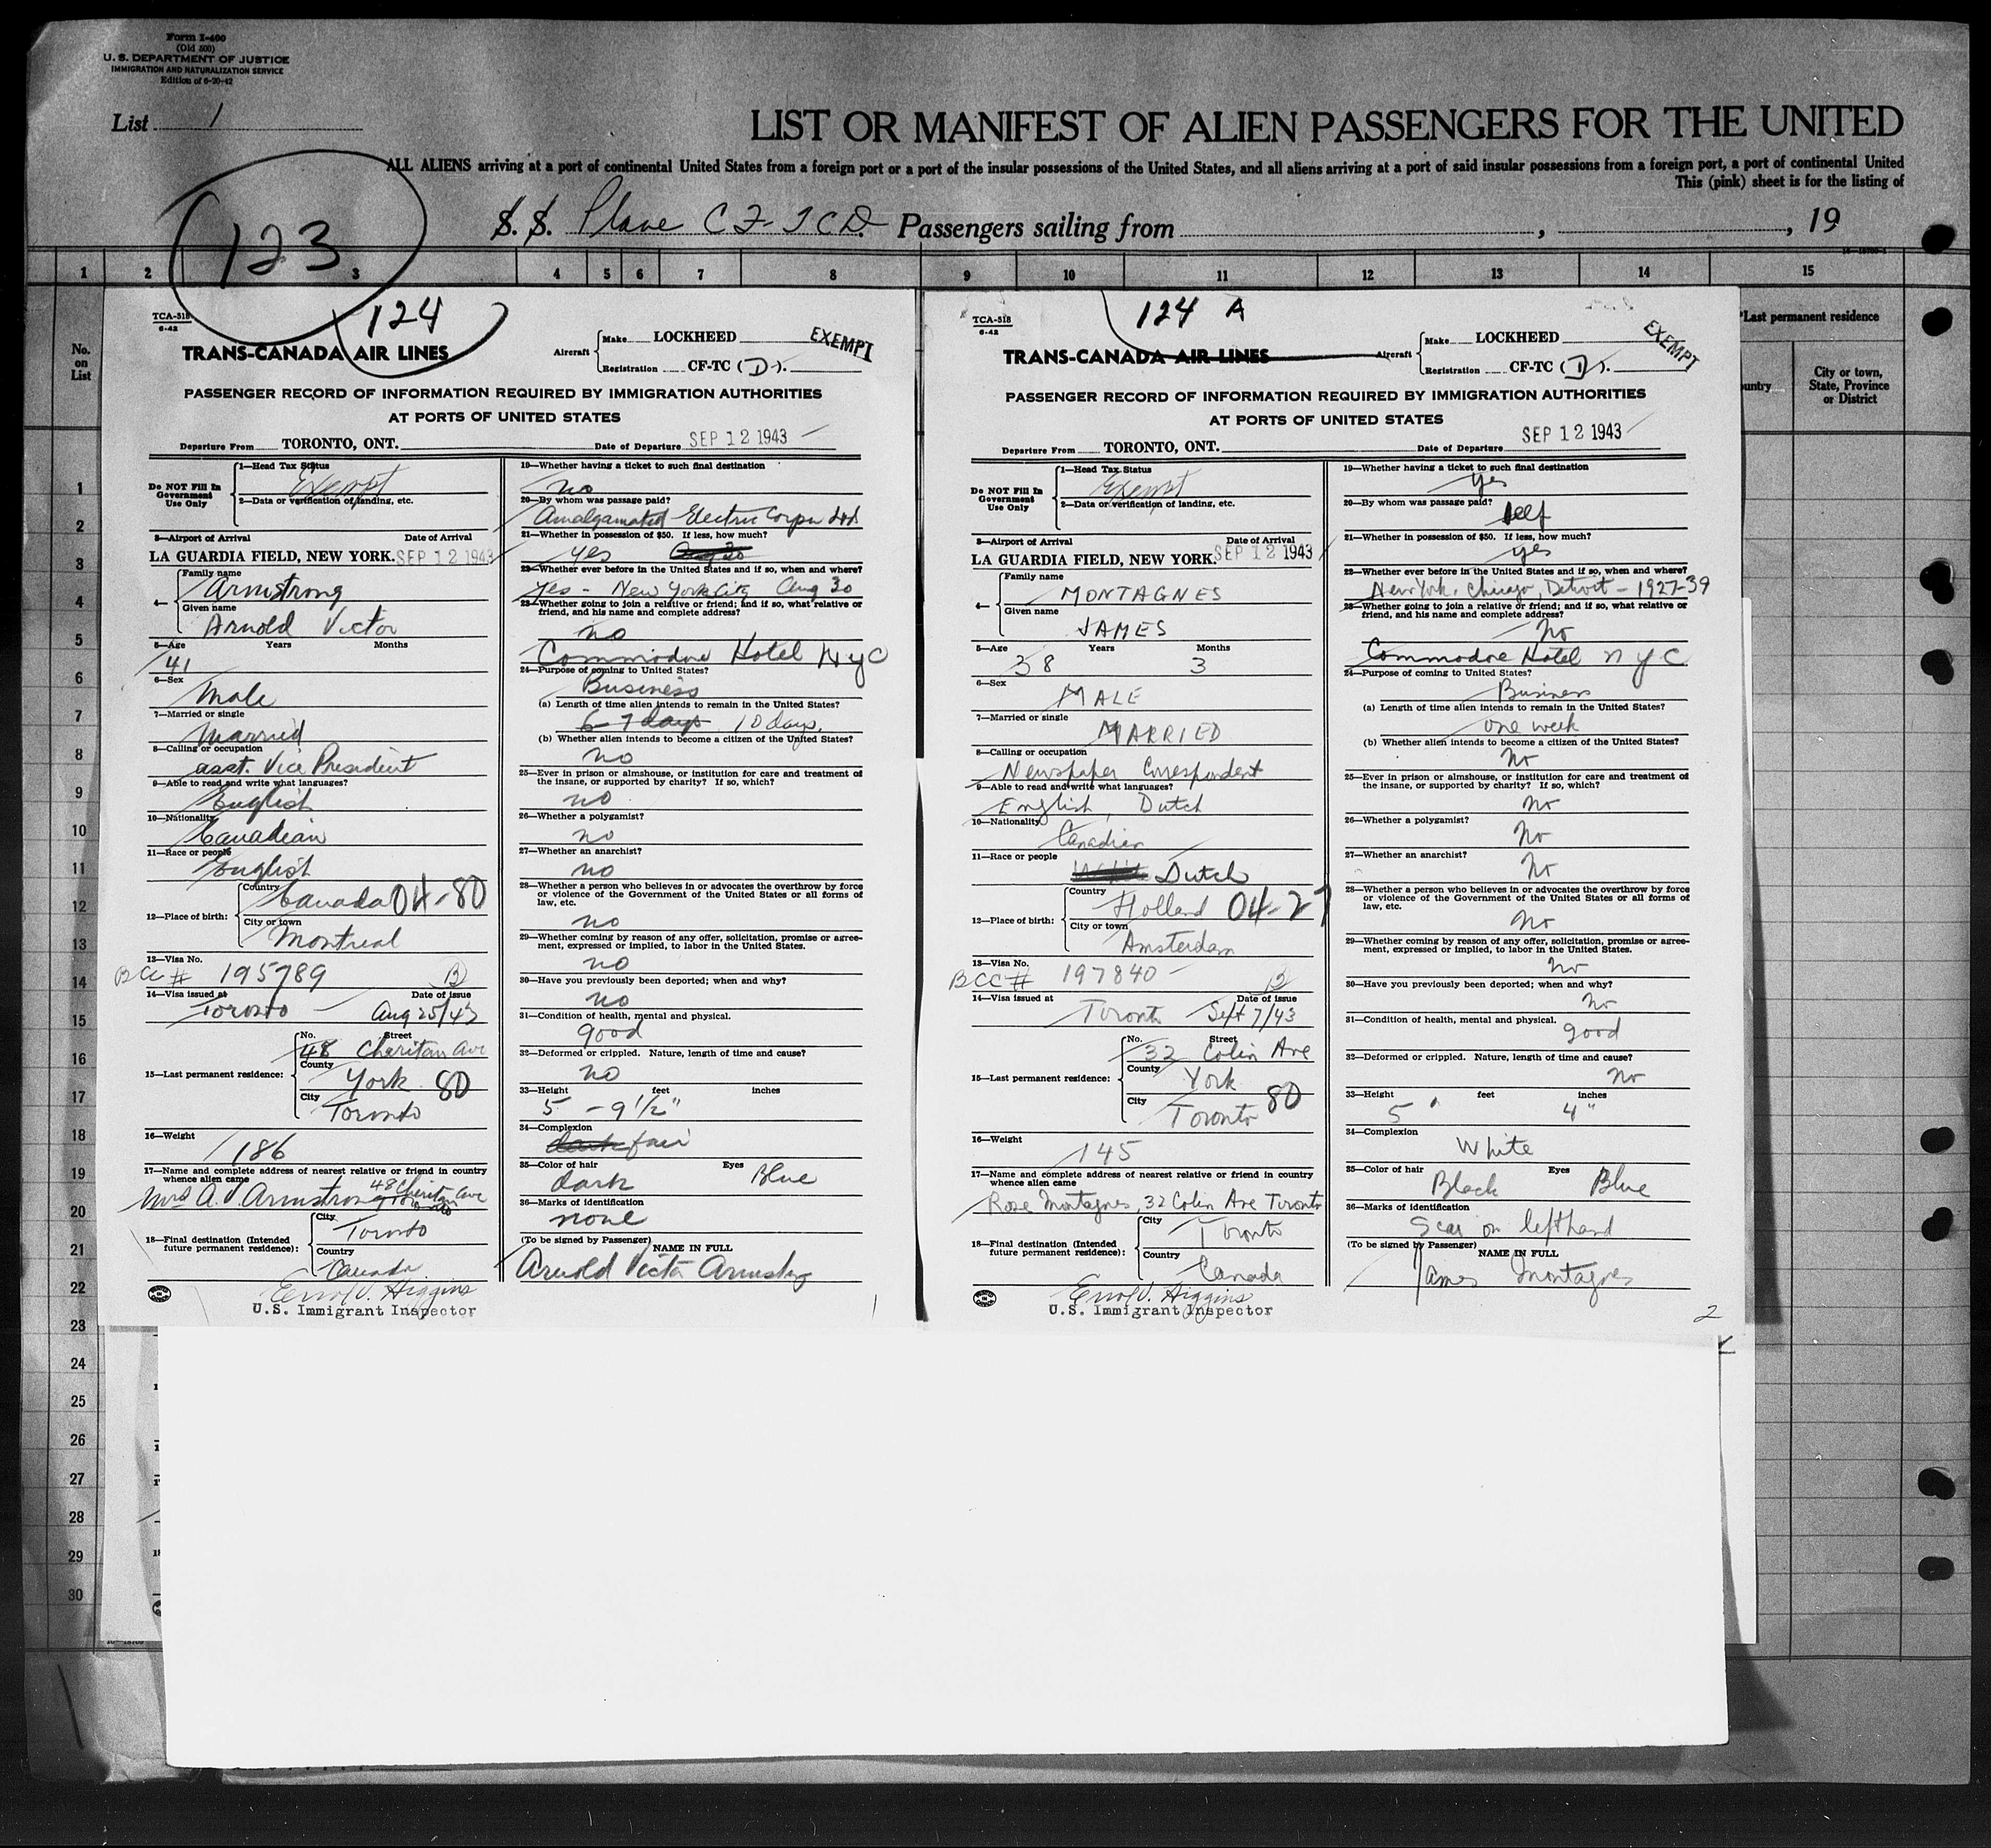 Form I-400
(Old 500)
U. S. DEPARTMENT OF JUSTICE
IMMIGRATION AND NATURALIZATION SERVICE
Edition of 6-20-42
List 1
LIST OR MANIFEST OF ALIEN PASSENGERS FOR THE UNITED
ALL ALIENS arriving at a port of continental United States from a foreign port or a port of the insular possessions of the United States, and all aliens arriving at a port of said insular possessions from a foreign port, a port of continental United
This (pink) sheet is for the listing of
123
S. S. Plane CF-TCD Passengers sailing from , , 19
1 2 3 4 5 6 7 8 9 10 11 12 13 14 15
No. on List
*Last permanent residence
City or town, State, Province or District
1
2
3
4
5
6
7
8
9
10
11
12
13
14
15
16
17
18
19
20
21
22
23
24
25
26
27
28
29
30
TCA-518
6-42
124
TRANS-CANADA AIR LINES
Aircraft
Make LOCKHEED
Registration CF-TC (D).
EXEMPT
PASSENGER RECORD OF INFORMATION REQUIRED BY IMMIGRATION AUTHORITIES
AT PORTS OF UNITED STATES
Departure From TORONTO, ONT. Date of Departure SEP 12 1943
Do NOT Fill In Government Use Only
1—Head Tax Status
Exempt
2—Data or verification of landing, etc.
3—Airport of Arrival Date of Arrival
LA GUARDIA FIELD, NEW YORK. SEP 12 1943
4—
Family name
Armstrong
Given name
Arnold Victor
5—Age Years Months
41
6—Sex
Male
7—Married or single
Married
8—Calling or occupation
asst. Vice President
9—Able to read and write what languages?
English
10—Nationality
Canadian
11—Race or people
English
12—Place of birth:
Country
Canada 04-80
City or town
Montreal
13—Visa No.
BCC # 195789 B
14—Visa issued at Date of issue
Toronto Aug 25/43
15—Last permanent residence:
No. Street
48 Cheritan Ave
County
York 80
City
Toronto
16—Weight
186
17—Name and complete address of nearest relative or friend in country
whence alien came
Mrs A. V. Armstrong 48 Cheritan Ave
Toronto
18—Final destination (Intended
future permanent residence):
City
Toronto
Country
Canada
Errol V. Higgins
U.S. Immigrant Inspector
19—Whether having a ticket to such final destination
no
20—By whom was passage paid?
Amalgamated Electric Corpn Ltd
21—Whether in possession of $50. If less, how much?
yes Aug 30
22—Whether ever before in the United States and if so, when and where?
yes - New York City Aug 30
23—Whether going to join a relative or friend; and if so, what relative or
friend, and his name and complete address?
no
Commodore Hotel NYC
24—Purpose of coming to United States?
Business
(a) Length of time alien intends to remain in the United States?
6-7 days 10 days.
(b) Whether alien intends to become a citizen of the United States?
no
25—Ever in prison or almshouse, or institution for care and treatment of
the insane, or supported by charity? If so, which?
no
26—Whether a polygamist?
no
27—Whether an anarchist?
no
28—Whether a person who believes in or advocates the overthrow by force
or violence of the Government of the United States or all forms of
law, etc.
no
29—Whether coming by reason of any offer, solicitation, promise or agree-
ment, expressed or implied, to labor in the United States.
no
30—Have you previously been deported; when and why?
no
31—Condition of health, mental and physical.
good
32—Deformed or crippled. Nature, length of time and cause?
no
33—Height feet inches
5 - 9 1/2"
34—Complexion
dark fair
35—Color of hair Eyes
dark Blue
36—Marks of identification
none
(To be signed by Passenger) NAME IN FULL
Arnold Victor Armstrong
1
TCA-518
6-42
124 A
TRANS-CANADA AIR LINES
Aircraft
Make LOCKHEED
Registration CF-TC (D).
EXEMPT
PASSENGER RECORD OF INFORMATION REQUIRED BY IMMIGRATION AUTHORITIES
AT PORTS OF UNITED STATES
Departure From TORONTO, ONT. Date of Departure SEP 12 1943
Do NOT Fill In Government Use Only
1—Head Tax Status
Exempt
2—Data or verification of landing, etc.
3—Airport of Arrival Date of Arrival
LA GUARDIA FIELD, NEW YORK. SEP 12 1943
4—
Family name
MONTAGNES
Given name
JAMES
5—Age Years Months
38 3
6—Sex
MALE
7—Married or single
MARRIED
8—Calling or occupation
Newspaper Correspondent
9—Able to read and write what languages?
English, Dutch
10—Nationality
Canadian
11—Race or people
Dutch
12—Place of birth:
Country
Holland 04-27
City or town
Amsterdam
13—Visa No.
BCC # 197840 - B
14—Visa issued at Date of issue
Toronto Sept 7/43
15—Last permanent residence:
No. Street
32 Colin Ave
County
York
City
Toronto 80
16—Weight
145
17—Name and complete address of nearest relative or friend in country
whence alien came
Rose Montagnes, 32 Colin Ave Toronto
18—Final destination (Intended
future permanent residence):
City
Toronto
Country
Canada
Errol V. Higgins
U.S. Immigrant Inspector
19—Whether having a ticket to such final destination
yes
20—By whom was passage paid?
self
21—Whether in possession of $50. If less, how much?
yes
22—Whether ever before in the United States and if so, when and where?
New York, Chicago, Detroit - 1927-39
23—Whether going to join a relative or friend; and if so, what relative or
friend, and his name and complete address?
No
Commodore Hotel NYC
24—Purpose of coming to United States?
Business
(a) Length of time alien intends to remain in the United States?
one week
(b) Whether alien intends to become a citizen of the United States?
No
25—Ever in prison or almshouse, or institution for care and treatment of
the insane, or supported by charity? If so, which?
No
26—Whether a polygamist?
No
27—Whether an anarchist?
No
28—Whether a person who believes in or advocates the overthrow by force
or violence of the Government of the United States or all forms of
law, etc.
No
29—Whether coming by reason of any offer, solicitation, promise or agree-
ment, expressed or implied, to labor in the United States.
No
30—Have you previously been deported; when and why?
No
31—Condition of health, mental and physical.
good
32—Deformed or crippled. Nature, length of time and cause?
No
33—Height feet inches
5' 4"
34—Complexion
White
35—Color of hair Eyes
Black Blue
36—Marks of identification
Scar on left hand
(To be signed by Passenger) NAME IN FULL
James Montagnes
2